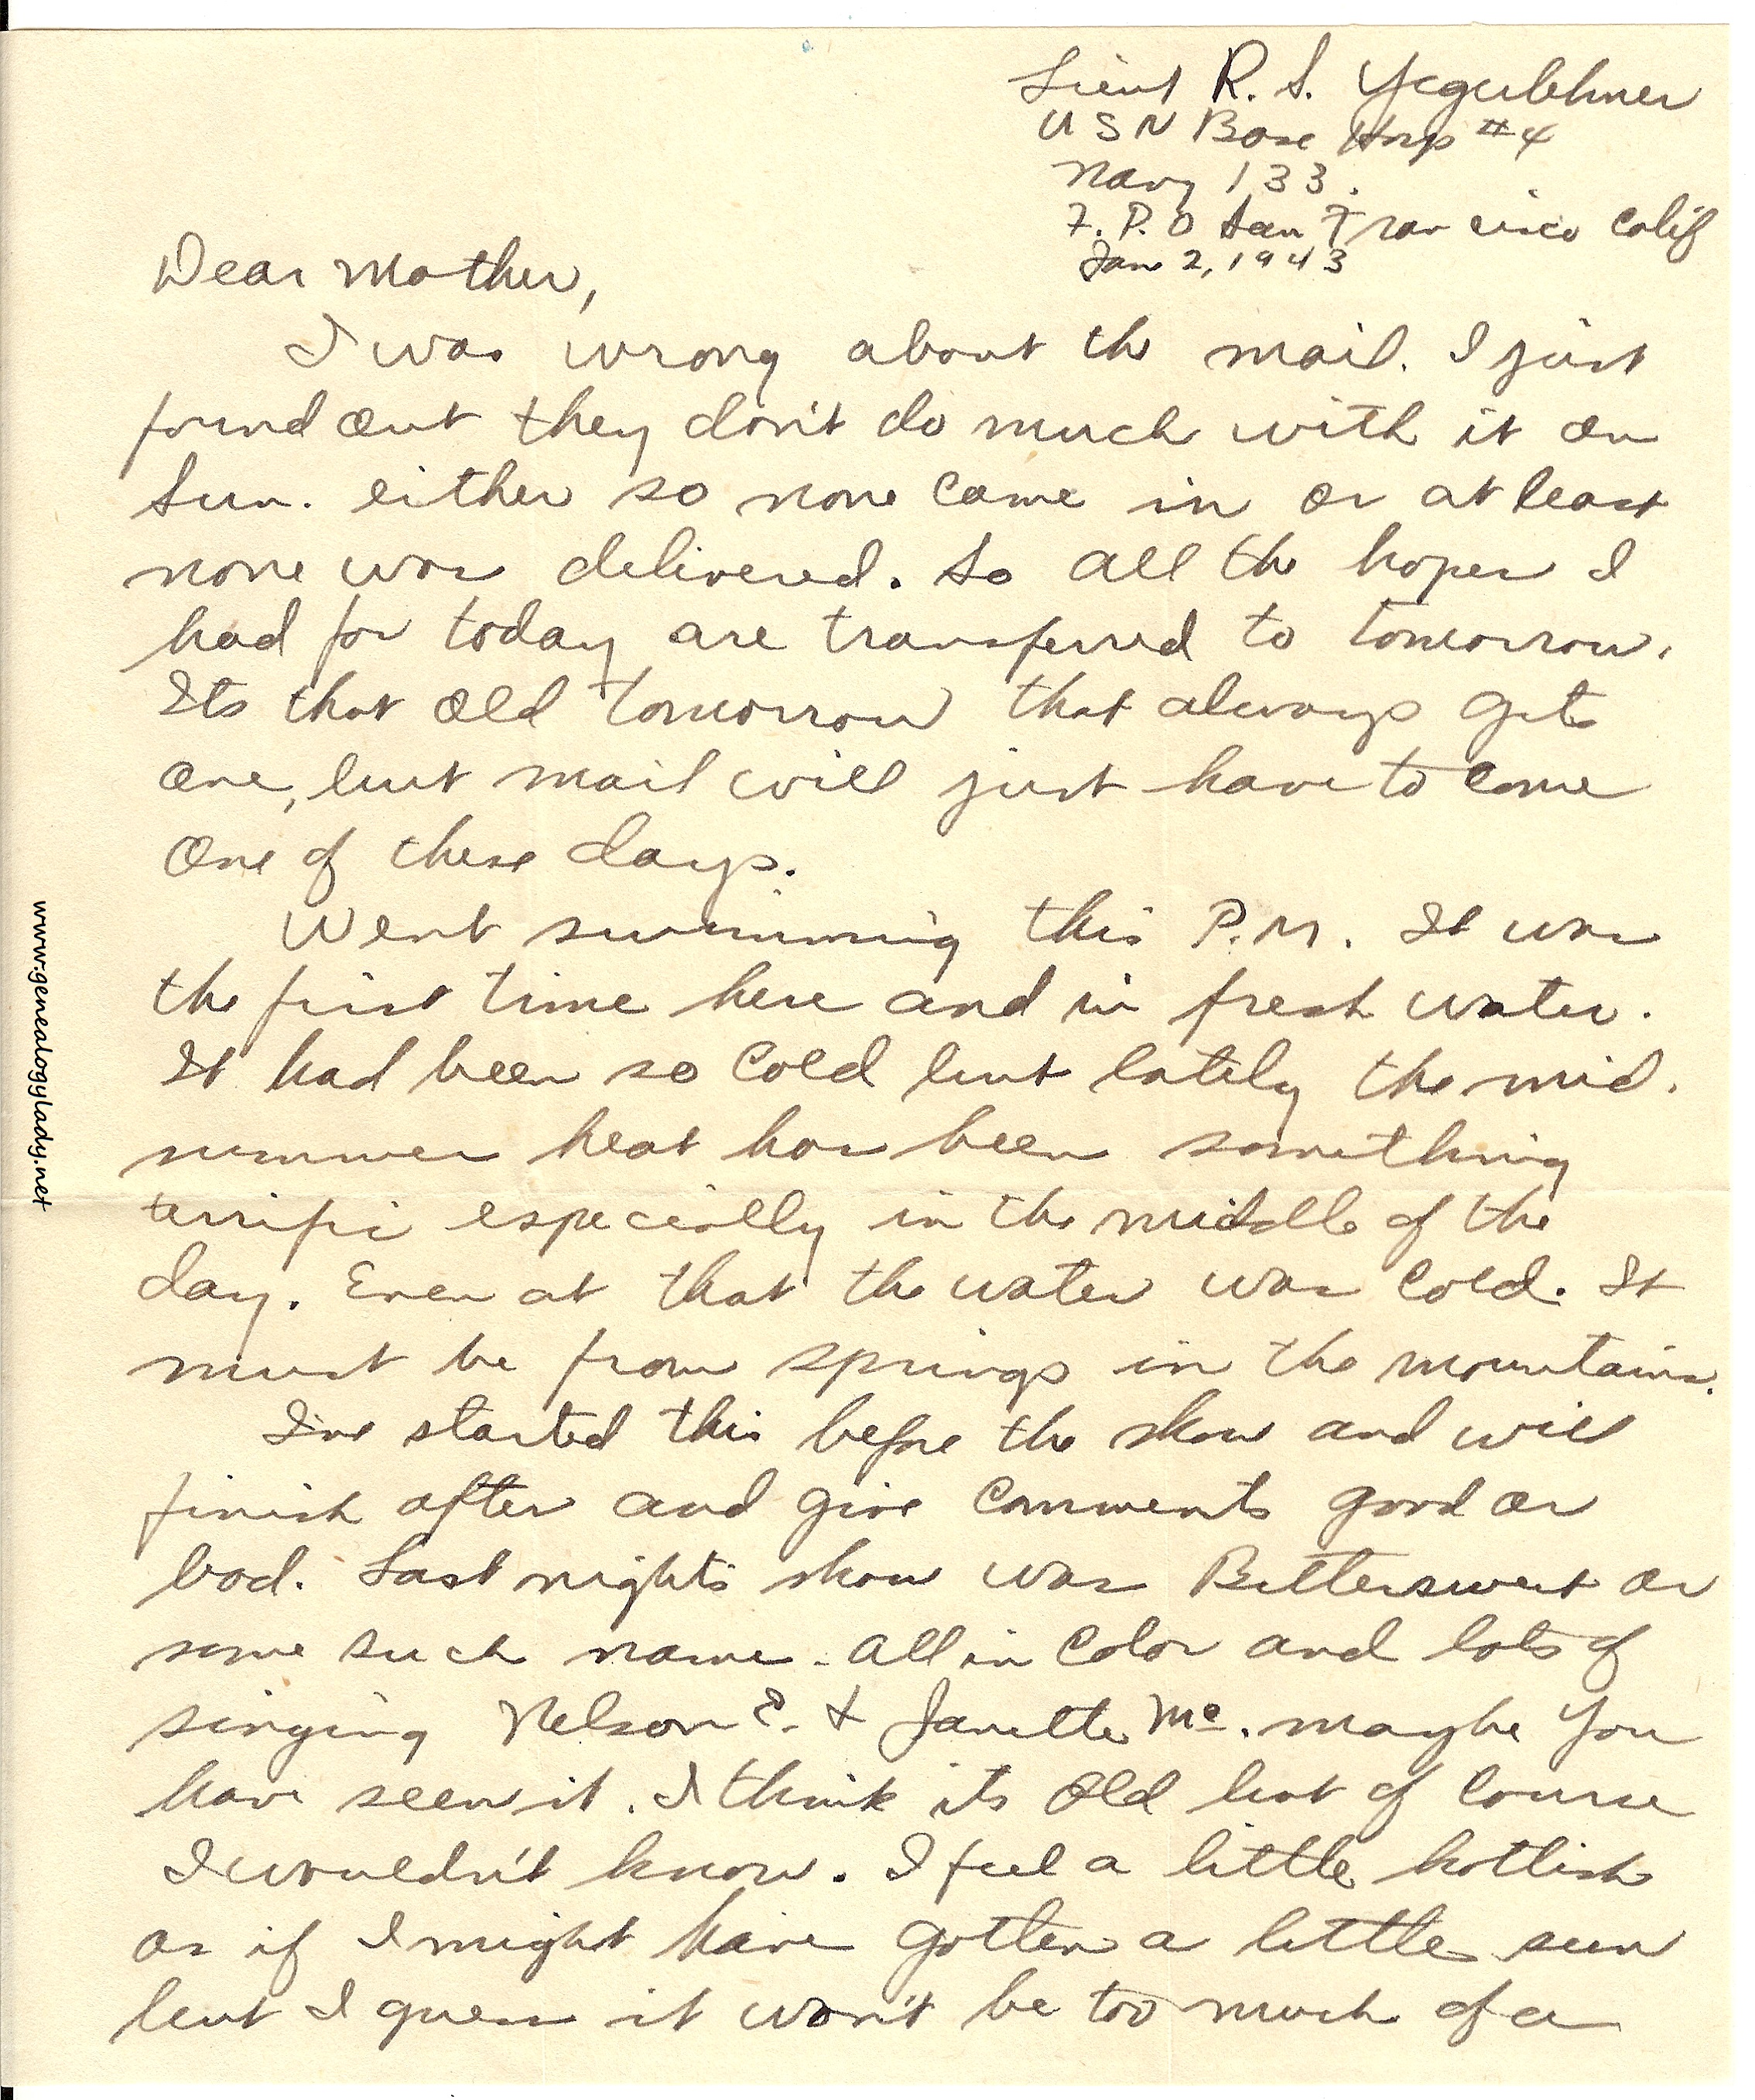 Lieut R. S. Yegerlehner
U S N Base Hosp #4
Navy 133.
F. P. O San Francisco Calif
Jan 2, 1943
Dear Mother,
I was wrong about the mail. I just
found out they don't do much with it on
Sun. either so none came in or at least
none was delivered. So all the hopes I
had for today are transferred to tomorrow.
Its that old tomorrow that always gets
one, but mail will just have to come
one of these days.
Went swimming this P.M. It was
the first time here and in fresh water.
It had been so cold but lately the mid.
summer heat has been something
terrific especially in the middle of the
day. Even at that the water was cold. It
must be from springs in the mountains.
I've started this before the show and will
finish after and give comments good or
bad. Last nights show was Bittersweet or
some such name - all in color and lots of
singing Nelson E. & Janette Mc. maybe you
have seen it. I think its old but of course
I wouldn't know. I feel a little hottish
as if I might have gotten a little sun
but I guess it won't be too much of a
www.genealogylady.net